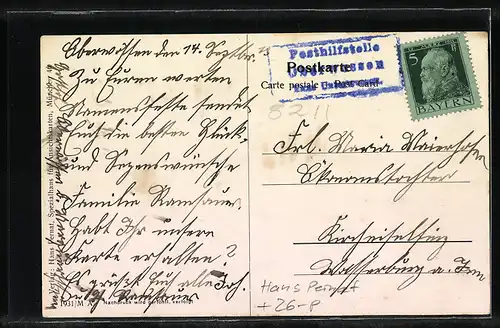 Oberwössen den 14. Septbr.
Zu Euren werten
Namensfeste sendet
Euch die besten Glück-
und Segenswünsche
Familie Ramsauer
Habt Ihr unsere
Karte erhalten?
Es grüsst Euch alle Joh.
Ramsauer
Verlag: Hans Pernat, Spezialhaus für Ansichtskarten, München
1931/M
Nachdruck wird gerichtl. verfolgt
Posthilfstelle
Oberwössen
Postkarte
Carte postale Post Card
5
BAYERN
8211
Frl. Maria Maierhofer
Ökonomstochter
Kircheiselfing
Wasserburg a. Inn
Hans Pernat
+26-P